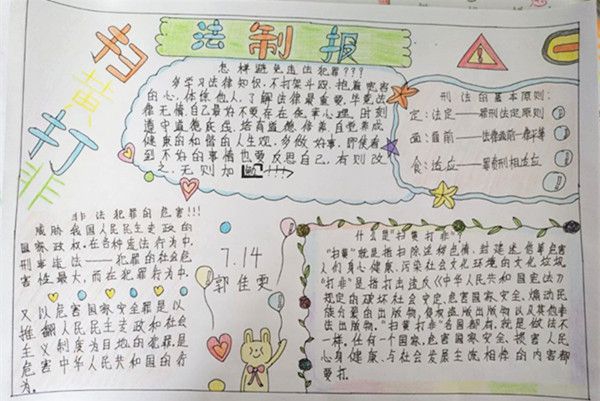 扫黄打非
法制报
怎样避免违法犯罪???
多学习法律知识,不打架斗殴,抱着宽容
的心,体谅他人,了解法律最重要,毕竟法
律无情,自己最好不要存在侥幸心理,时刻
遵守道德民俗,培育道德修养,自我养成
健康的和谐的人生观,多做好事,即使看
到不好的事情也要反思自己,有则改
之,无则加勉!!!
刑法的基本原则:
定:法定——罪刑法定原则
面:面前——法律面前一律平等
食:适应——罪责刑相适应
非法犯罪的危害!!!
威胁我国人民民主专政的
国家政权,在各种违法行为中,
刑事违法——犯罪的社会危
害性最大,而在犯罪行为中,
又以危害国家安全罪是以
推翻人民民主专政和社会
主义制度为目的的犯罪,是
危害中华人民共和国的行
为。
7.14
郭佳雯
什么是"扫黄打非"?
"扫黄"就是指扫除淫秽色情、封建迷信等危害
人们身心健康、污染社会文化环境的文化垃圾
"打非"是指打击违反《中华人民共和国宪法》
规定的破坏社会安定、危害国家安全、煽动民
族分裂的出版物,侵权盗版出版物以及其他非
法出版物。"扫黄打非"各国都有,就是做法不
一样。任何一个国家,危害国家安全、损害人民
心身健康、与社会发展主流相悖的内容都
要打。